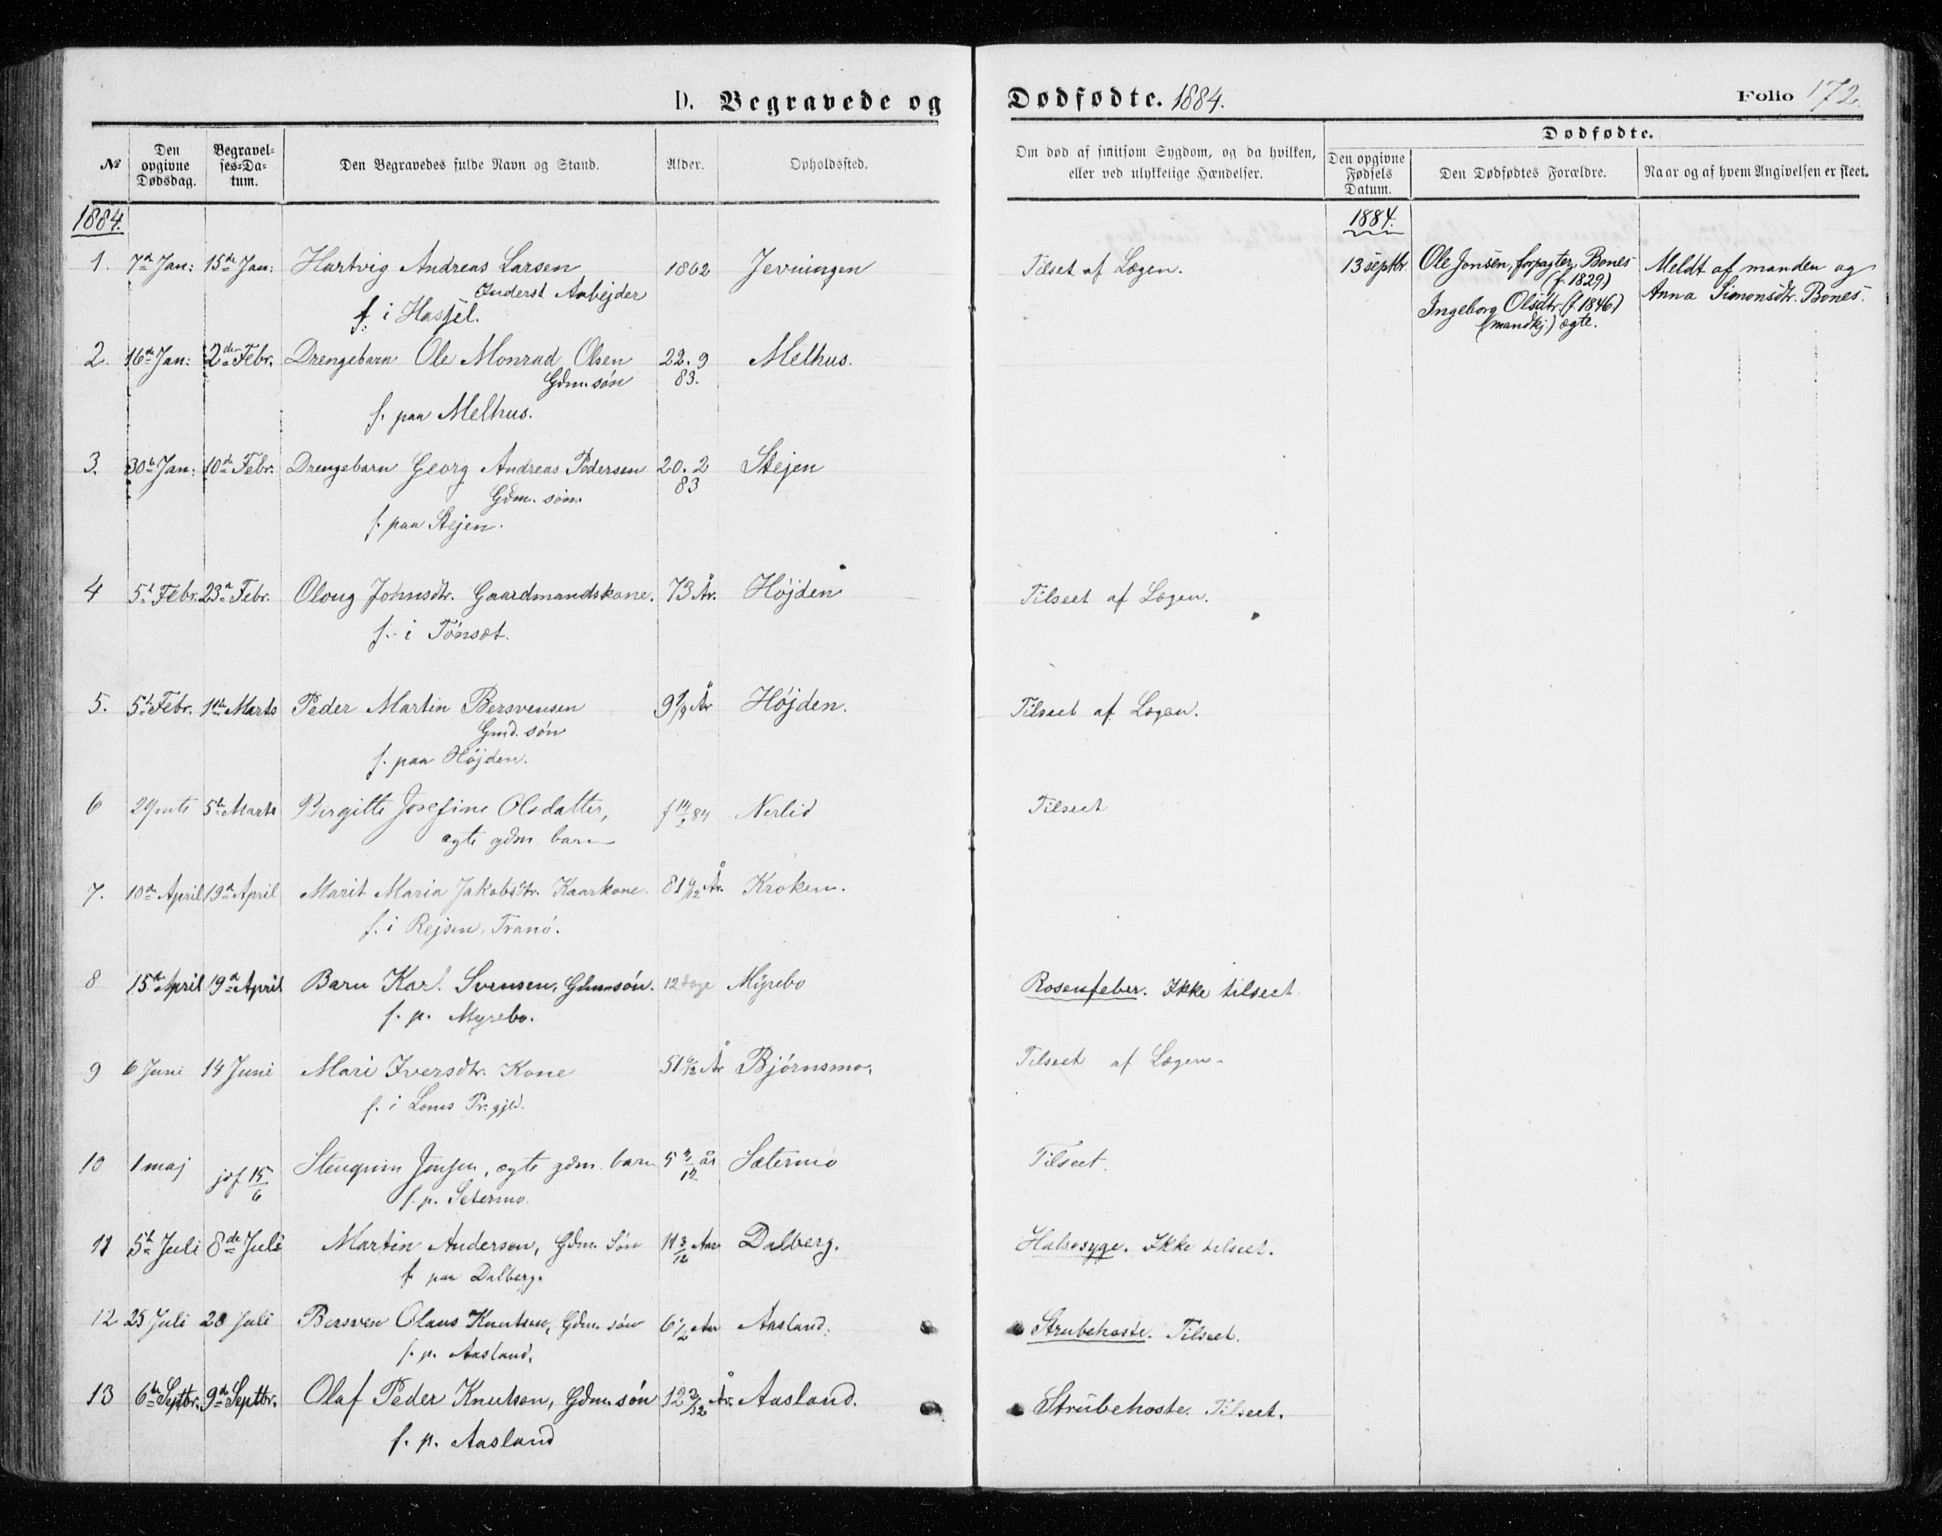 D. Begravede og Dødfødte. 1884. Folio 172.
Dødfødte.
№ Den opgivne Dødsdag. Begravelses-Datum. Den Begravedes fulde Navn og Stand. Alder. Opholdssted. Om død af smitsom Sygdom, og da hvilken, eller ved ulykkelige Hændelser. Den opgivne Fødsels Datum. Den Dødfødtes Forældre. Naar og af hvem Angivelsen er skeet.
1884. 1884.
1. 7de Jan: 15de Jan: Hartvig Andreas Larsen 1862 Jevningen Tilset af Lægen. 13 septbr Ole Jonsen, forpagter, Bones Meldt af manden og
Inderst Arbejder (f. 1829) Anna Simonsdtr. Bones.
f. i Hassel. Ingeborg Olsdtr. (f 1846)
(mandkj) ægte.
2. 16de Jan: 2den Febr. Drengebarn Ole Monrad Olsen 22. 9 Melhus.
Gdm. søn 83.
f. paa Melhus.
3. 30te Jan: 10de Febr. Drengebarn Georg Andreas Pedersen 20. 2 Stejen
Gdm. søn. 83
f. paa Stejen.
4 5t Febr. 23de Febr. Oloug Johnsdtr. Gaardmandskone. 73 År. Højden Tilseet af Lægen.
f. i Tönsæt.
5. 5t Febr. 1ste Marts Peder Martin Bersvensen 9 År Højden. Tilseet af Lægen.
Gmd. søn
f. paa Højden.
6 5t Marts Birgitte Josefine Olsdatter, f 14/2 84 Nerlid Tilseet
ægte gdm. barn
7. 10de April 19de April Marit Maria Jakobsdtr. Kaarkone. 81 6/12 År. Kroken.
f. i Rejsen, Tranö.
8 15de April 19de April Barn Karl Svensen, Gdmssøn. 12 dage Myrebo Rosenfeber. Ikke tilseet.
f. p. Myrebo.
9 6 Juni 14 Juni Mari Iversdtr. Kone 51 6/12 År Bjørnsmo. Tilseet af Lægen.
f. i Loms Pr.gjld.
10 1 maj jdf 15/6 Stengrim Jonsen, ægte gdm. barn 5 år Sætermo Tilseet.
f. p. Setermo.
11 5t Juli 8de Juli Martin Andersen, Gdm. Søn 11 3/12 Aar Dalberg. Halssyge. Ikke tilseet.
f. paa Dalberg.
12 25 Juli 28 Juli Bersven Olaus Knutsen, Gdm. søn 6 1/2 Aar Aasland. Strubehoste. Tilseet.
f. p. Aasland.
13 6te Septbr. 9de Septbr. Olaf Peder Knutsen, Gdm. søn 12 3/12 År. Aasland. Strubehoste. Tilseet.
f. p. Aasland